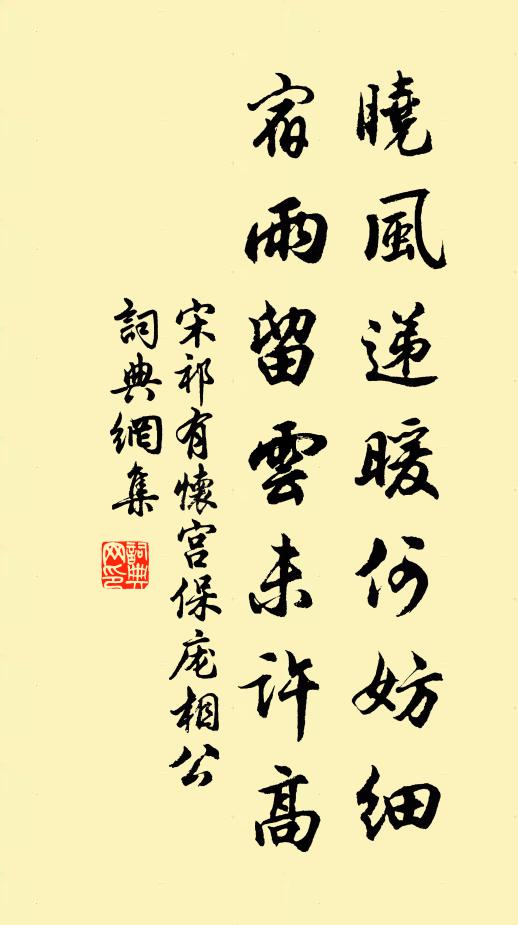 曉風递暖何妨細
宿雨留雲未許高
宋祁有懷宮保庞相公
詞典網集
詞典网印